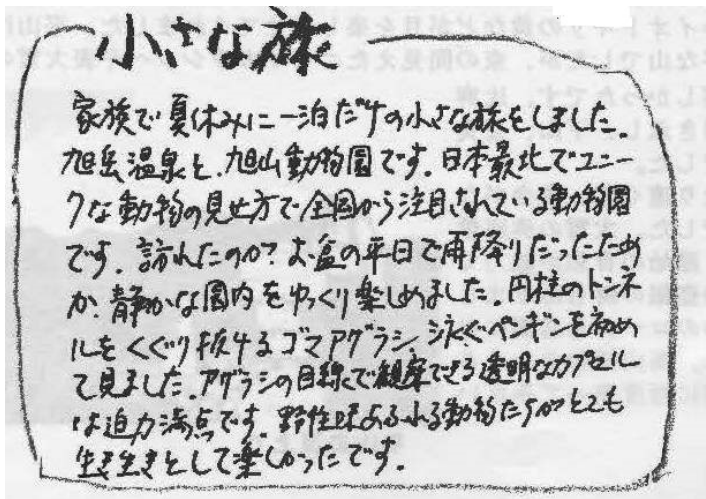 小さな旅
家族で夏休みに一泊だけの小さな旅をしました。
旭岳温泉と、旭山動物園です。日本最北でユニー
クな動物の見せ方で全国から注目されている動物園
です。訪れたのが?お盆の平日で雨降りだったため
か、静かな園内をゆっくり楽しめました。円柱のトンネ
ルをくぐり抜けるゴマアザラシ、泳ぐペンギンを初め
て見ました。アザラシの目線で観察できる透明なカプセル
は迫力満点です。野性味あふれる動物たちがとても
生き生きとして楽しかったです。